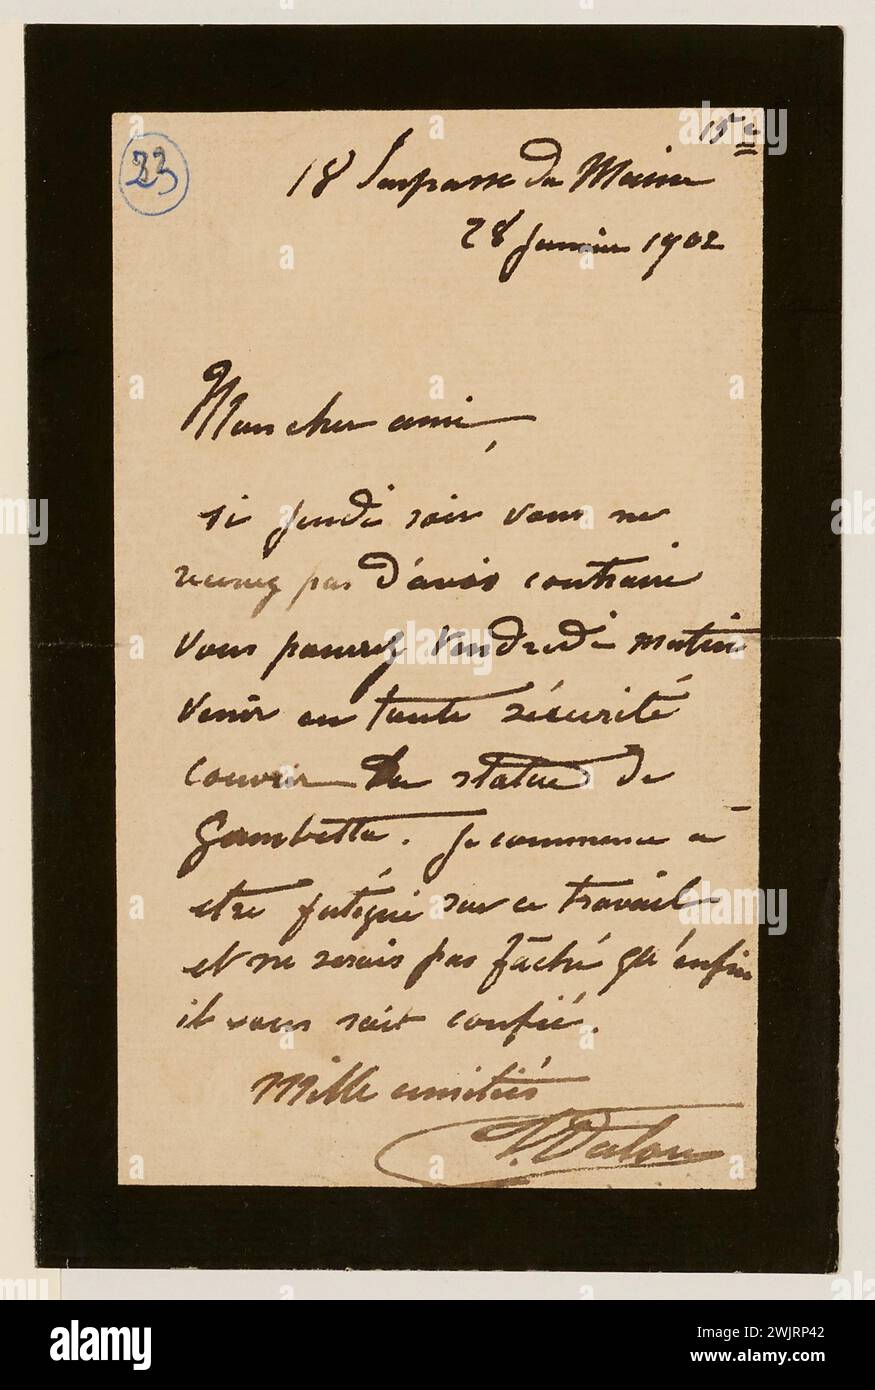 23
15e
18 Impasse du Maine
28 janvier 1902
Mon cher ami,
si jeudi soir vous ne
recevez pas d'avis contraire
vous pourrez vendredi matin
venir en toute sécurité
couvrir la statue de
Gambetta. Je commence à
etre fatigué sur ce travail
et ne serais pas fâché qu'enfin
il vous soit confié.
Mille amitiés
J. Dalou
alamy
Image ID: 2WJRP42
www.alamy.com